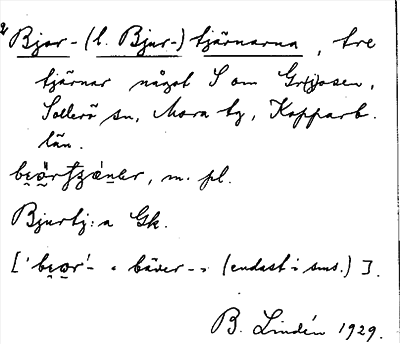 Bjor- (l. Bjur-) tjärnarna, tre
tjärnar något S om Gr(j)osen,
Sollerö sn, Mora tg, Kopparb.
län.
m. pl.
Bjurtj:a Gk.
['                - « bäver- » (endast i sms.)].
B. Lindén 1929.